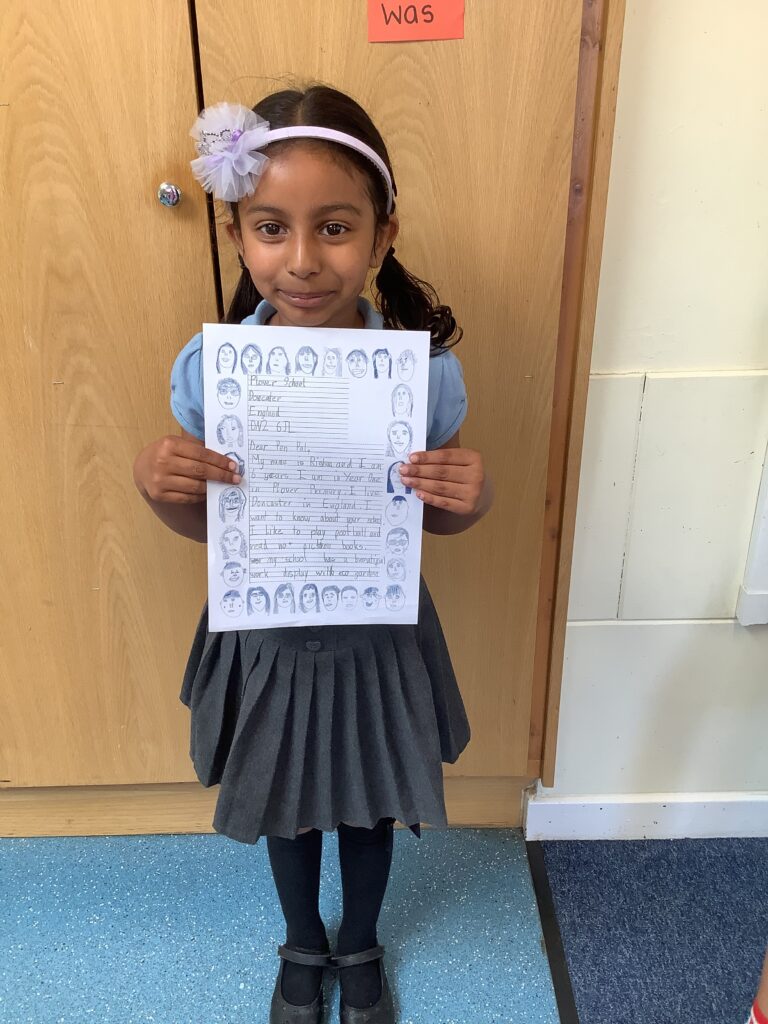 was
Plover School
Doncater
England
DN2 6JL
Dear Pen Pal,
My name is and I am
6 years. I am in Year One
in Plover Primary. I live
Doncaster in England I
want to know about your school
I like to play football and
read picture books.
my school has a beautiful
work display with eco garden